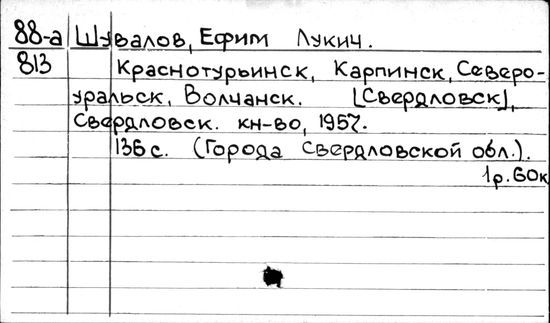 88-а Шувалов, Ефим Лукич.
813 Краснотурьинск, Карпинск, Северо-
уральск, Волчанск. [Свердловск],
Свердловск. кн-во, 1957.
136 с. (Города Свердловской обл.).
1р.60к